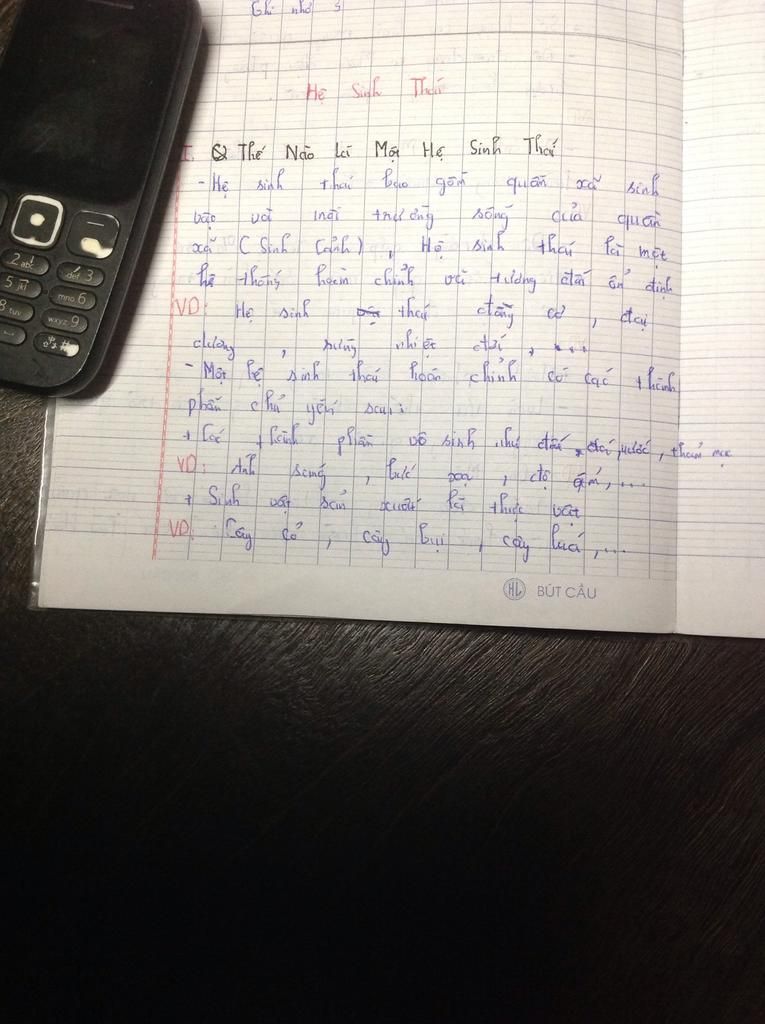 Ghi nhớ 3
Hệ Sinh Thái
I. Thế Nào Là Một Hệ Sinh Thái
- Hệ sinh thái bao gồm quần xã sinh
vật và môi trường sống của quần
xã (Sinh Cảnh), Hệ sinh thái là một
hệ thống hoàn chỉnh và tương đối ổn định
VD: Hệ sinh thái đồng cỏ, đại
dương, rừng nhiệt đới, ...
- Một hệ sinh thái hoàn chỉnh có các thành
phần chủ yếu sau:
+ Các thành phần vô sinh như đất, đá, nước, thảm mục
VD: Ánh sáng, bức xạ, độ ẩm, ...
+ Sinh vật sản xuất là thực vật
VD: Cây cỏ, cây bụi, cây lúa, ...
HL BÚT CẦU
2 abc
def 3
5 jkl
mno 6
8 tuv
wxyz 9